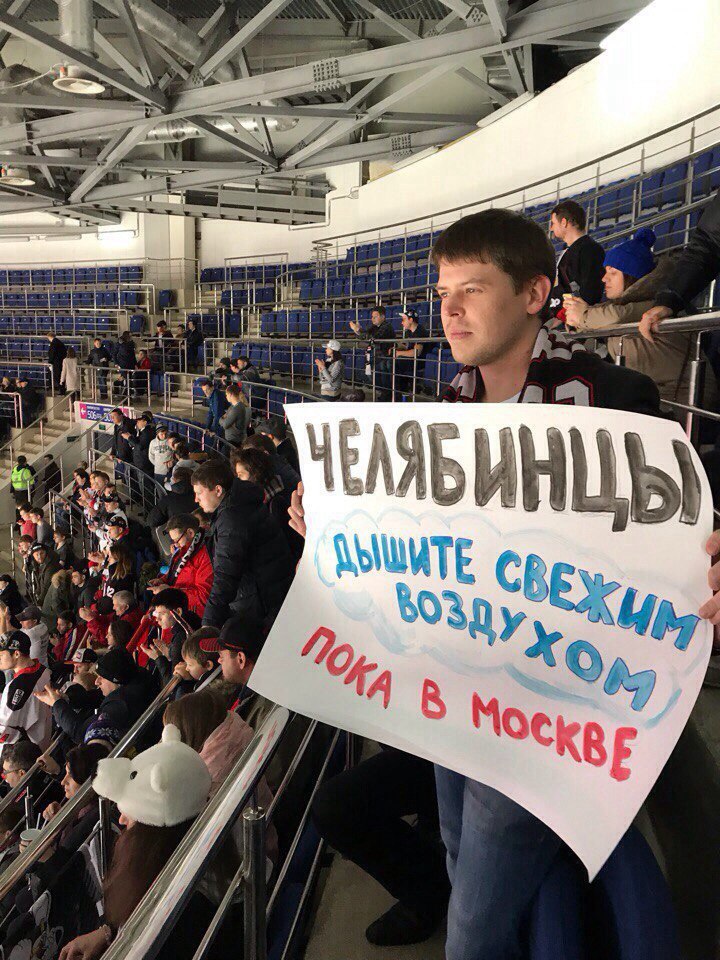 ЧЕЛЯБИНЦЫ
ДЫШИТЕ СВЕЖИМ
ВОЗДУХОМ
ПОКА В МОСКВЕ